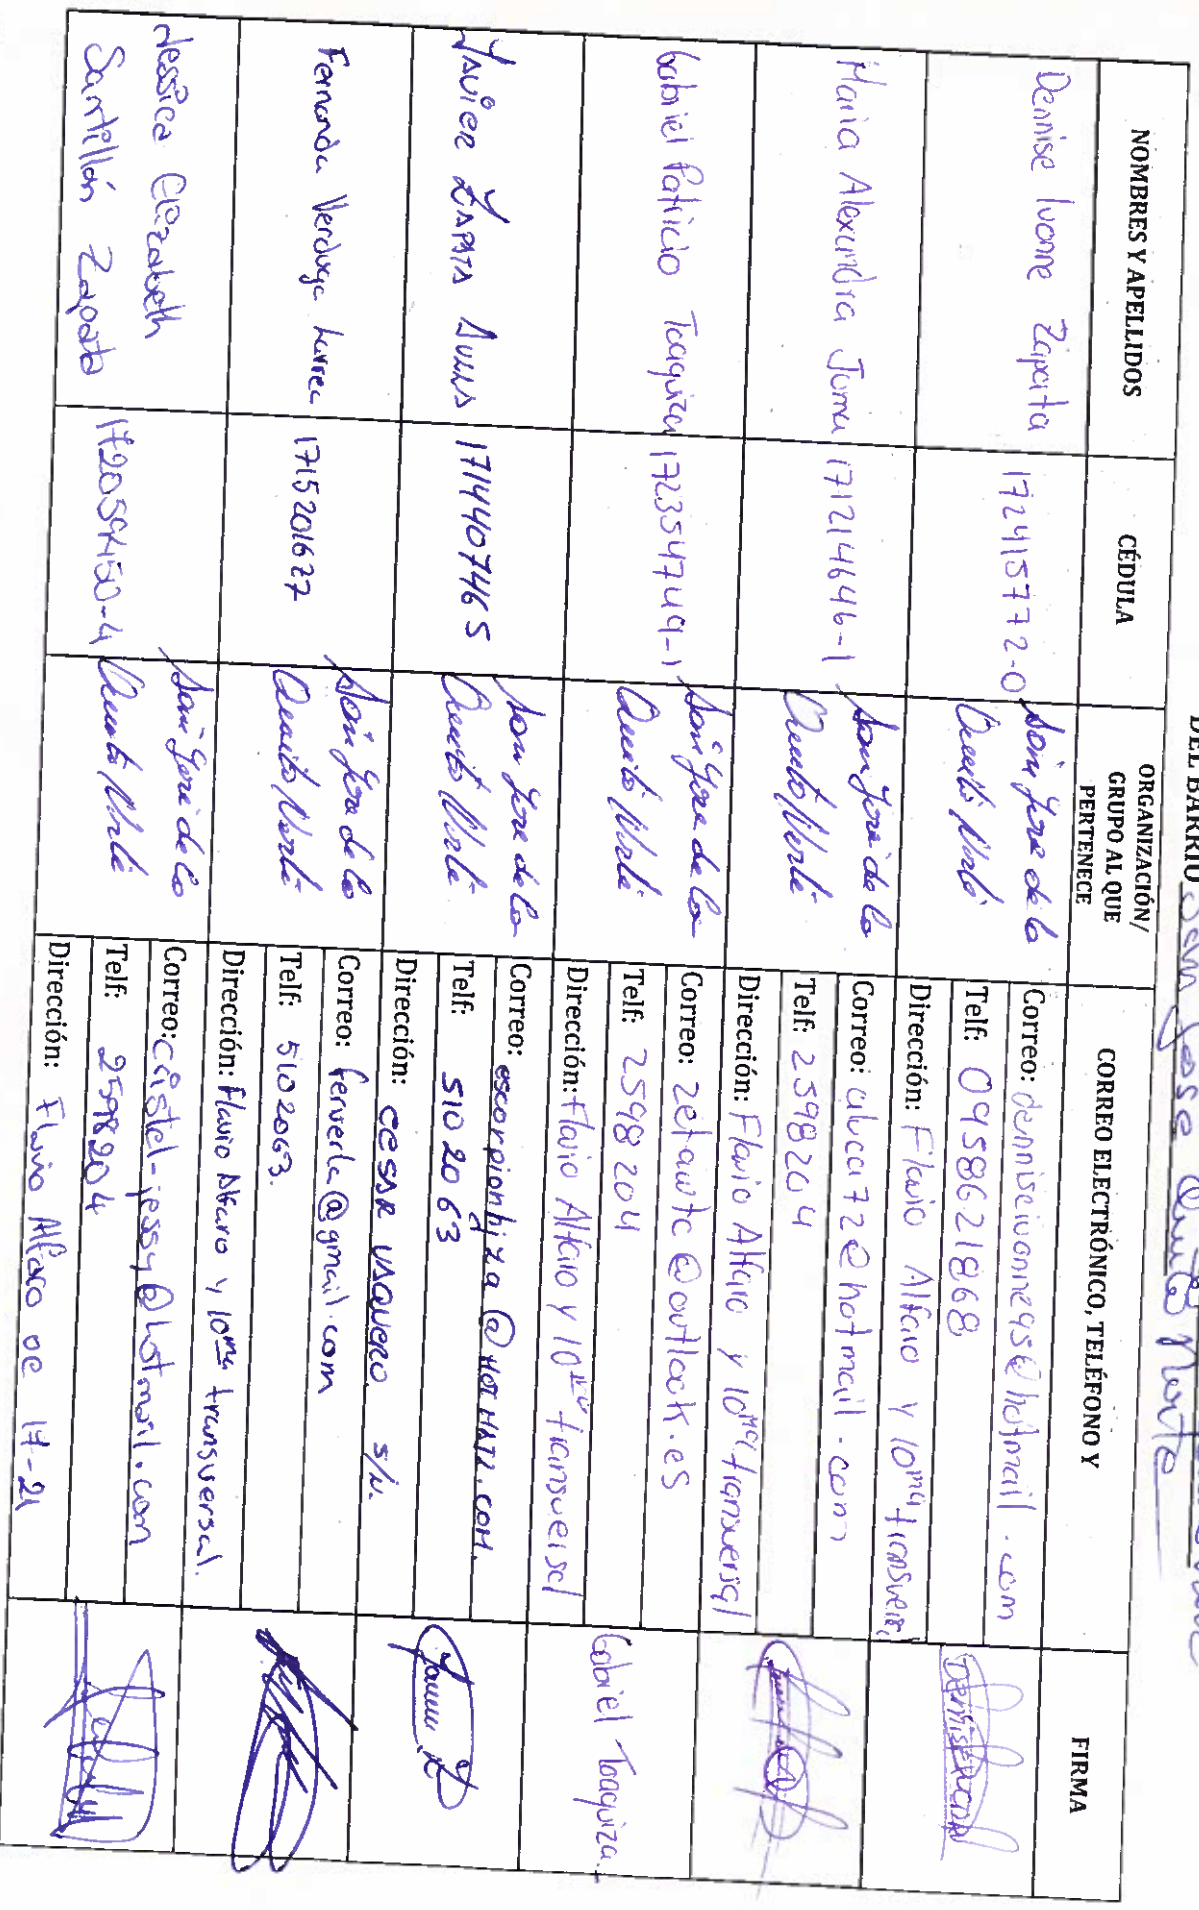 DEL BARRIO San Jose Quito Norte
NOMBRES Y APELLIDOS
CÉDULA
ORGANIZACIÓN/
GRUPO AL QUE
PERTENECE
CORREO ELECTRÓNICO, TELÉFONO Y
FIRMA
Dennise Ivonne Zapata
172415772-0
San José de la
Quito Norte
Correo: denniseivonne95@hotmail.com
Telf: 0958621868
Dirección: Flavio Alfaro y 10ma
Maria Alexandra Juma
171214646-1
San José de la
Quito Norte
Correo: aluca72@hotmail.com
Telf: 2598204
Dirección: Flavio Alfaro y 10ma transversal
Gabriel Patricio Toaquiza
172354749-1
San José de la
Quito Norte
Correo: zetawtc@outlook.es
Telf: 2598204
Dirección: Flavio Alfaro y 10ma transversal
Gabriel Toaquiza
JAVIER ZAPATA
1714407465
San José de la
Quito Norte
Correo: escorpionhiza@HOTMAIL.COM.
Telf: 5102063
Dirección: CESAR VAQUERO s/N.
Fernanda Verduga Larrea
1715201627
San José de la
Quito Norte
Correo: ferverla@gmail.com
Telf: 5102063.
Dirección: Flavio Alfaro y 10ma transversal.
Jessica Elizabeth
Santillán Zapata
172059450-4
San José de la
Quito Norte
Correo: cristel-jessy@hotmail.com
Telf: 2598204
Dirección: Flavio Alfaro oe 17-21